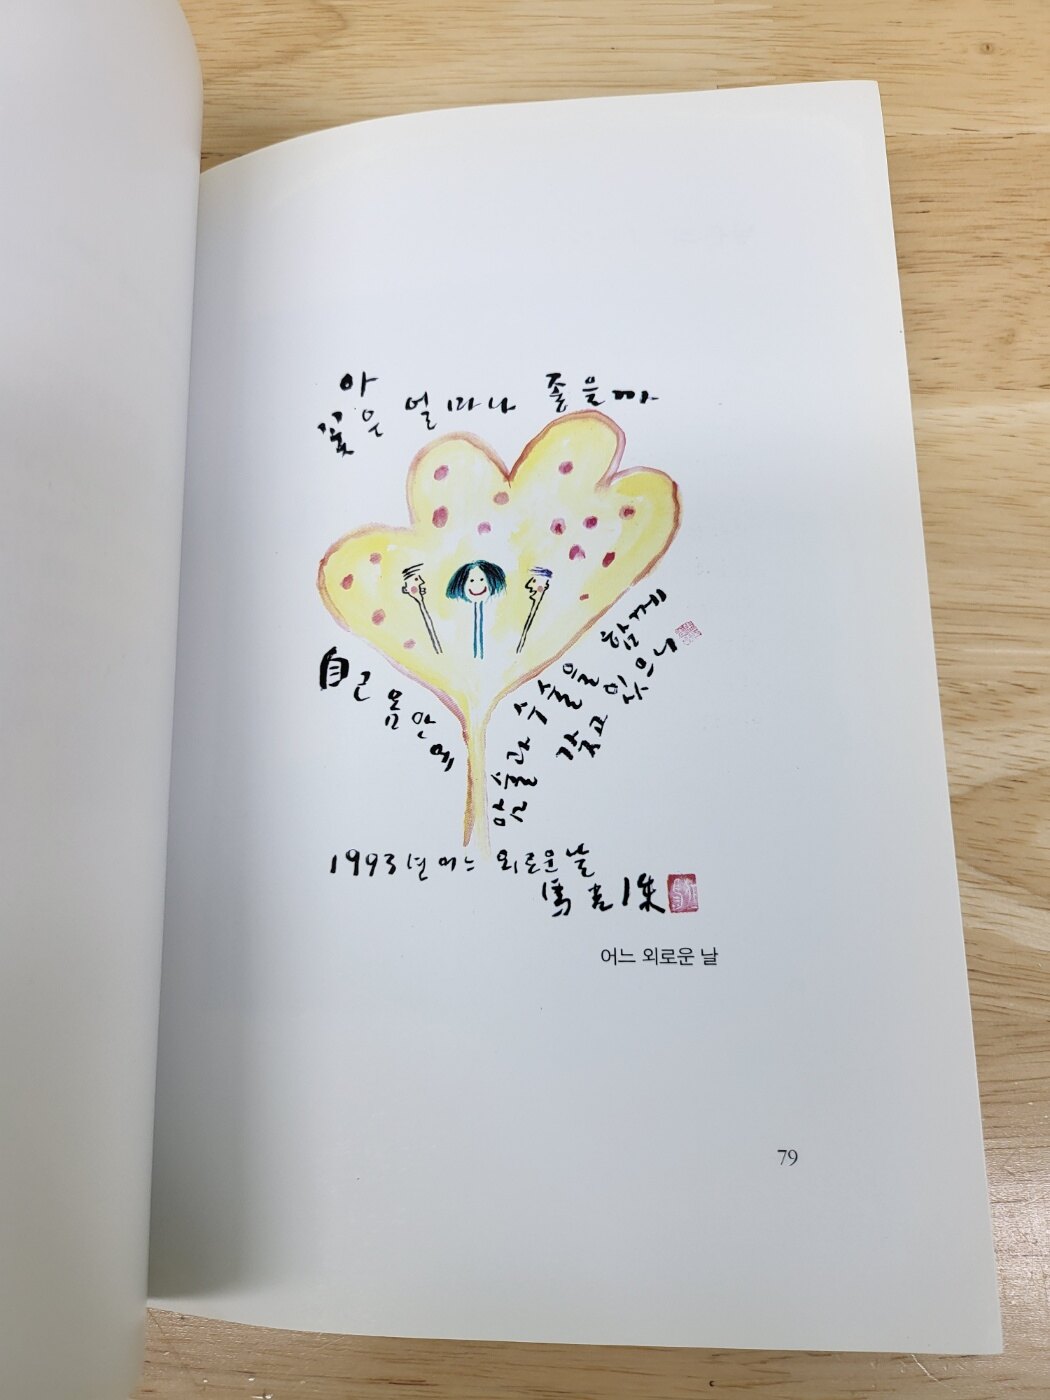 아
꽃은 얼마나 좋을까
自己 몸 안에
암술과 수술을 함께
갖고 있으니
1993년 어느 외로운 날
어느 외로운 날
79